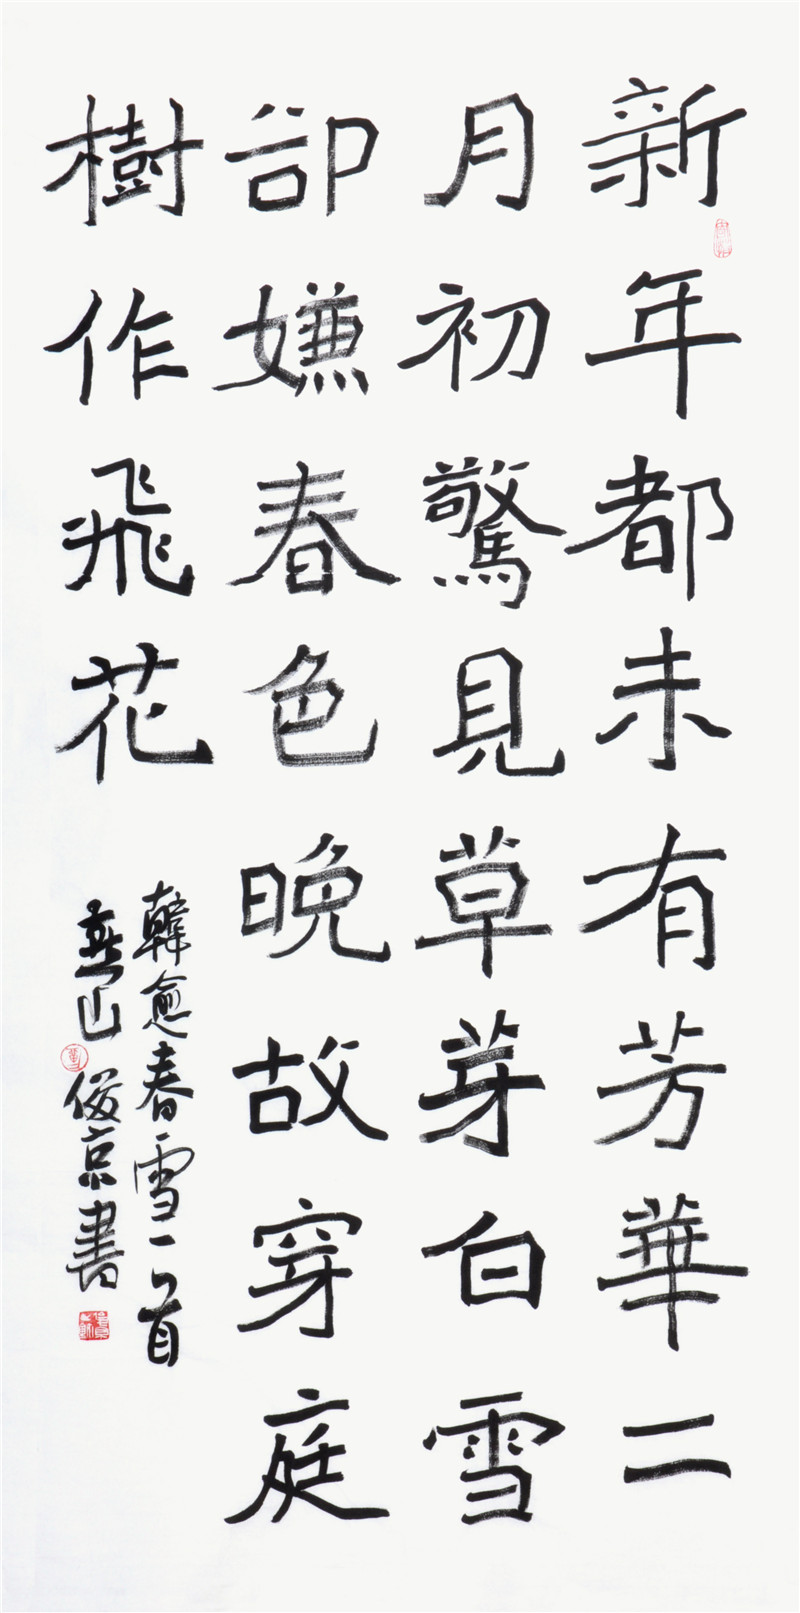 新年都未有芳華二
月初驚見草芽白雪
卻嫌春色晚故穿庭
樹作飛花
韓愈春雪一首
燕山俊京書